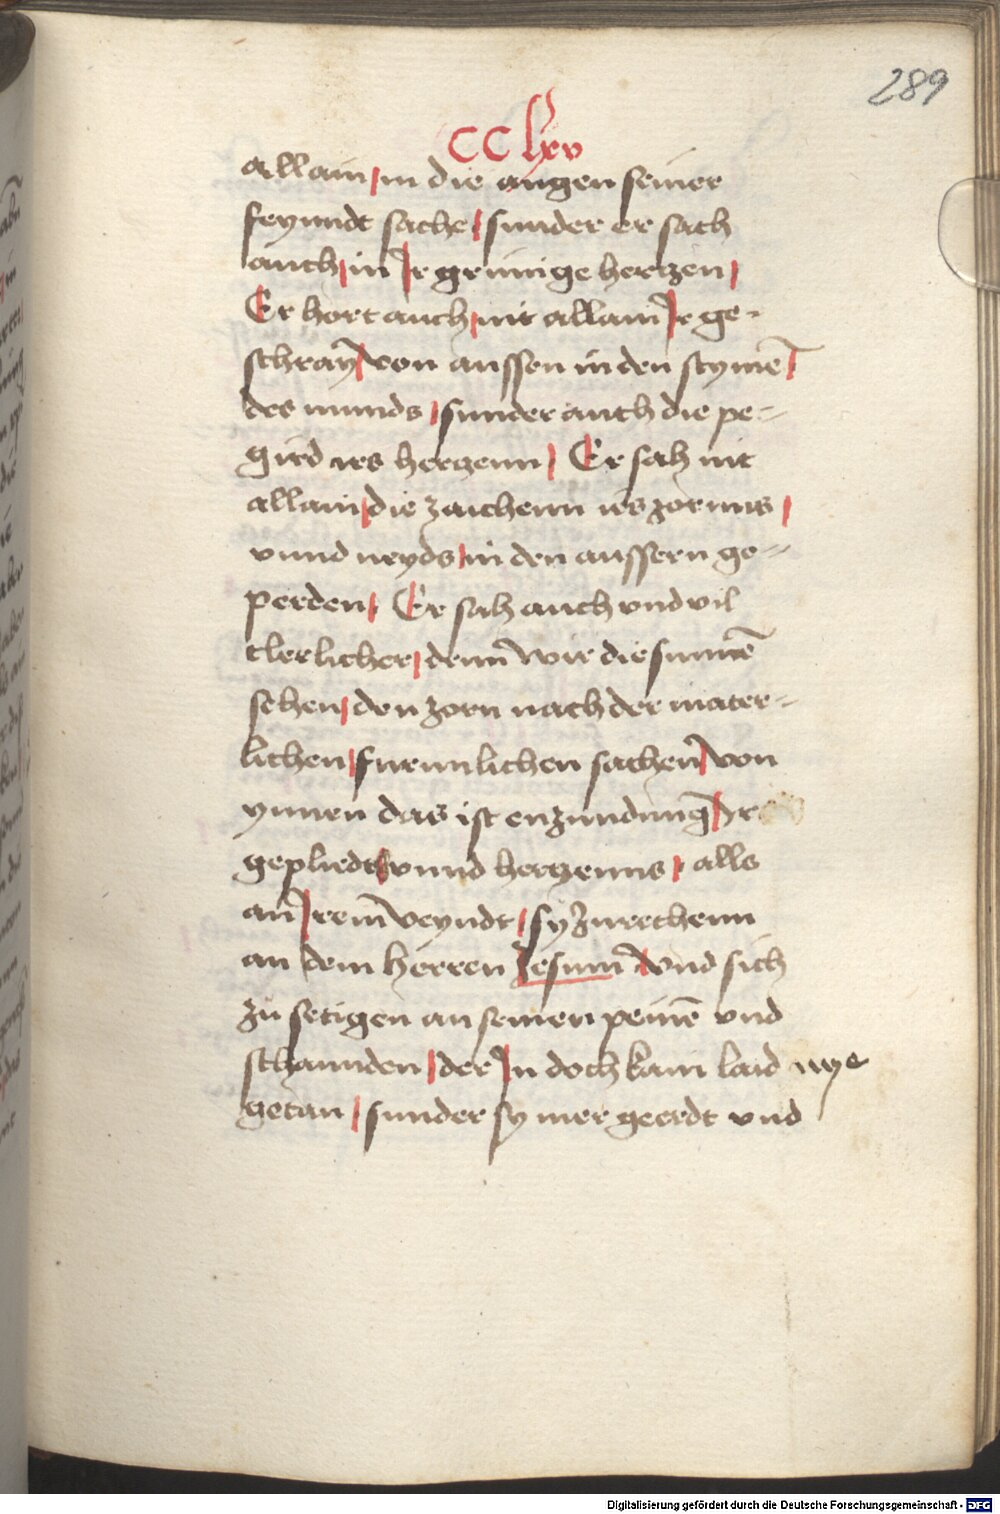 289
CC lxv
allain in die augen seiner
feynndt sache sunder er sach
auch in Ir grünige hertzen
Er hort auch nit allain Ir ge-
schray von aussen in den stymē
des munds sunder auch die pe-
gird irs hertzenn Er sah nit
allain die zaichenn irs zornns
vnnd neyds in den aussern ge-
perden Er sah auch vnd vil
clerlicher denn wir die sunnē
sehen den zorn nach der mater-
lichen furmlichen sachen von
ynnen das ist enzundung Ir
gepliedts vnnd hertzenns alls
an Irem veyndt sy zu rechenn
an dem herren Jesum vnd sich
zu setigen an seinen peinē vnd
schannden der In doch kain laid nye
getan sunder sy mer geerdt vnd
Digitalisierung gefördert durch die Deutsche Forschungsgemeinschaft - DFG